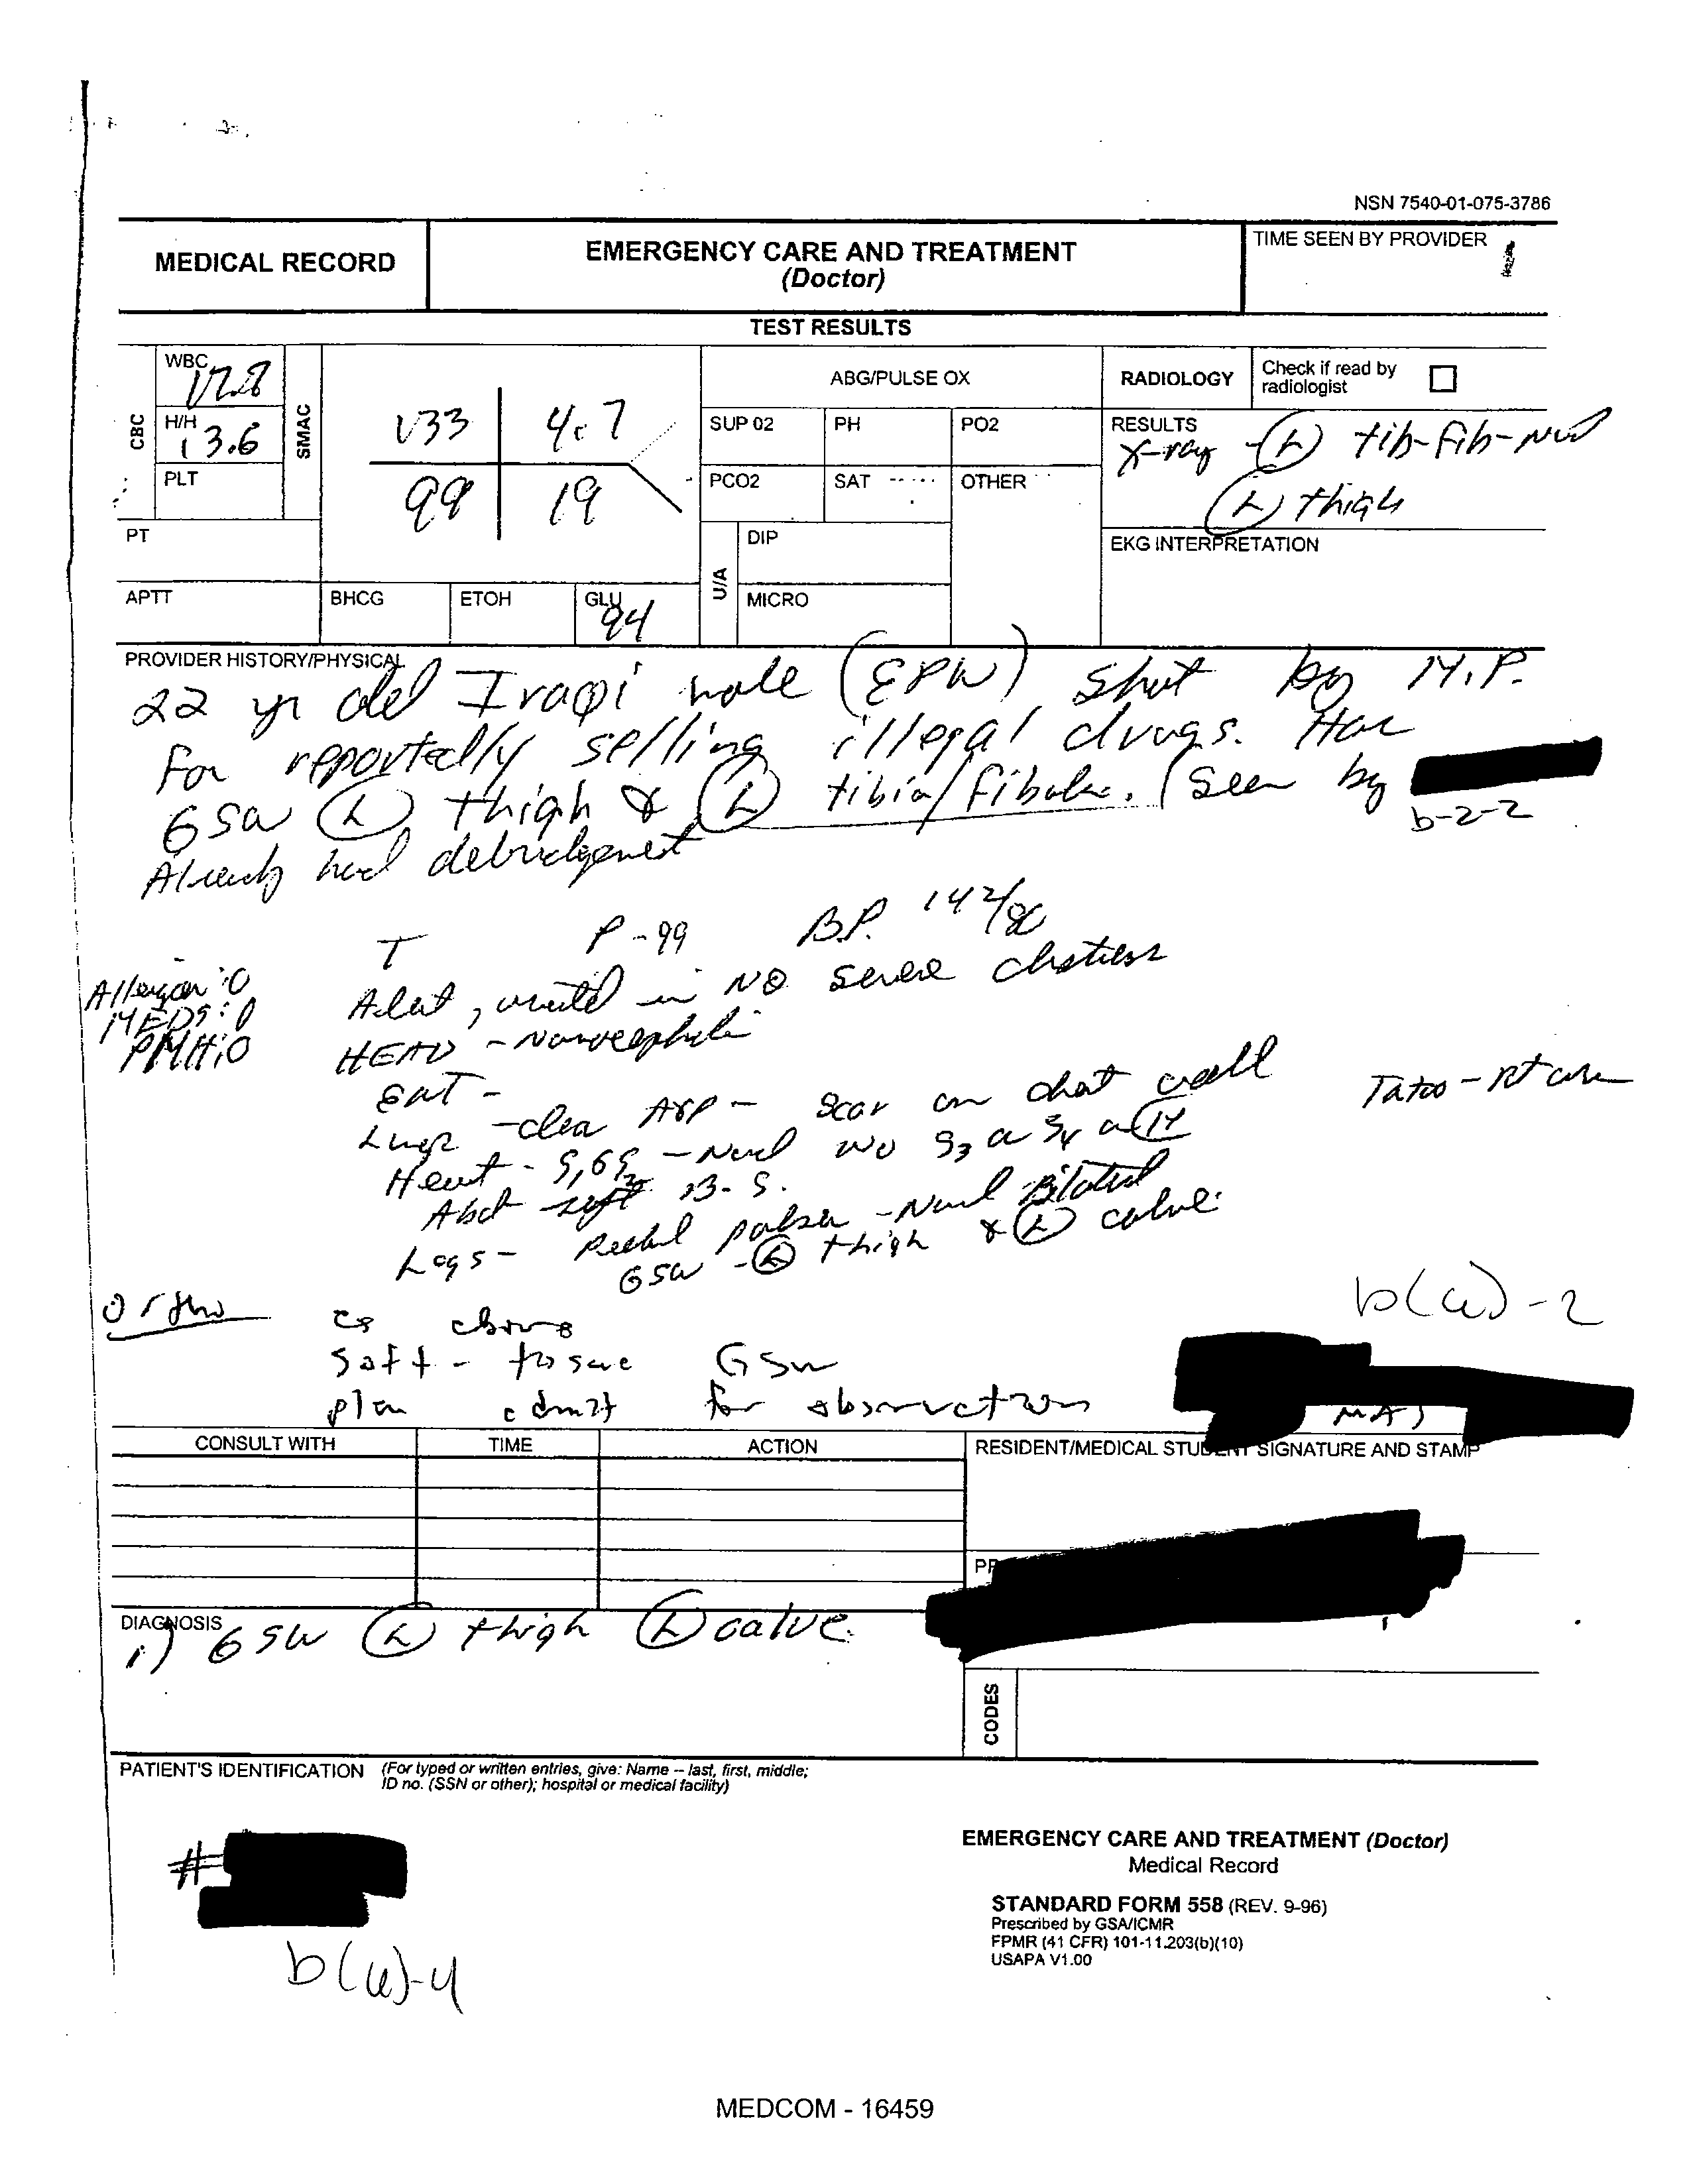 NSN 7540-01-075-3786
MEDICAL RECORD
EMERGENCY CARE AND TREATMENT
(Doctor)
TIME SEEN BY PROVIDER
TEST RESULTS
CBC
WBC
H/H
13.6
PLT
SMAC
133
4.7
99
19
PT
APTT
BHCG
ETOH
GLU
94
ABG/PULSE OX
SUP 02
PH
PO2
PCO2
SAT
OTHER
U/A
DIP
MICRO
RADIOLOGY
Check if read by
radiologist
RESULTS
X-ray - (L) tib-fib-
(L) thigh
EKG INTERPRETATION
PROVIDER HISTORY/PHYSICAL
22 yr old Iraqi male (EPW) shot by M.P.
For reportedly selling illegal drugs. Has
GSW (L) thigh & (L) tibia/fibula. (Seen by
b-2-2
Already had debridgement
T P-99 B.P. 142/80
Alert, in NO severe distress
MEDS: 0
PMH: 0
HEAD -
ENT -
Lungs - clear A&P - scar on chest wall
Heart - S1 & S2 - S3 S4 (M)
Abd soft B.S.
Tatoo - Rt arm
Legs - Pedal pulses -
GSW - (L) thigh & (L) calve
Ortho
as above
soft-tissue GSW
plan admit for observation
b(6)-2
MAJ
CONSULT WITH
TIME
ACTION
RESIDENT/MEDICAL STUDENT SIGNATURE AND STAMP
DIAGNOSIS
1) GSW (L) thigh (L) calve
CODES
PATIENT'S IDENTIFICATION (For typed or written entries, give: Name – last, first, middle;
ID no. (SSN or other); hospital or medical facility)
#
b(6)-4
EMERGENCY CARE AND TREATMENT (Doctor)
Medical Record
STANDARD FORM 558 (REV. 9-96)
Prescribed by GSA/ICMR
FPMR (41 CFR) 101-11.203(b)(10)
USAPA V1.00
MEDCOM - 16459